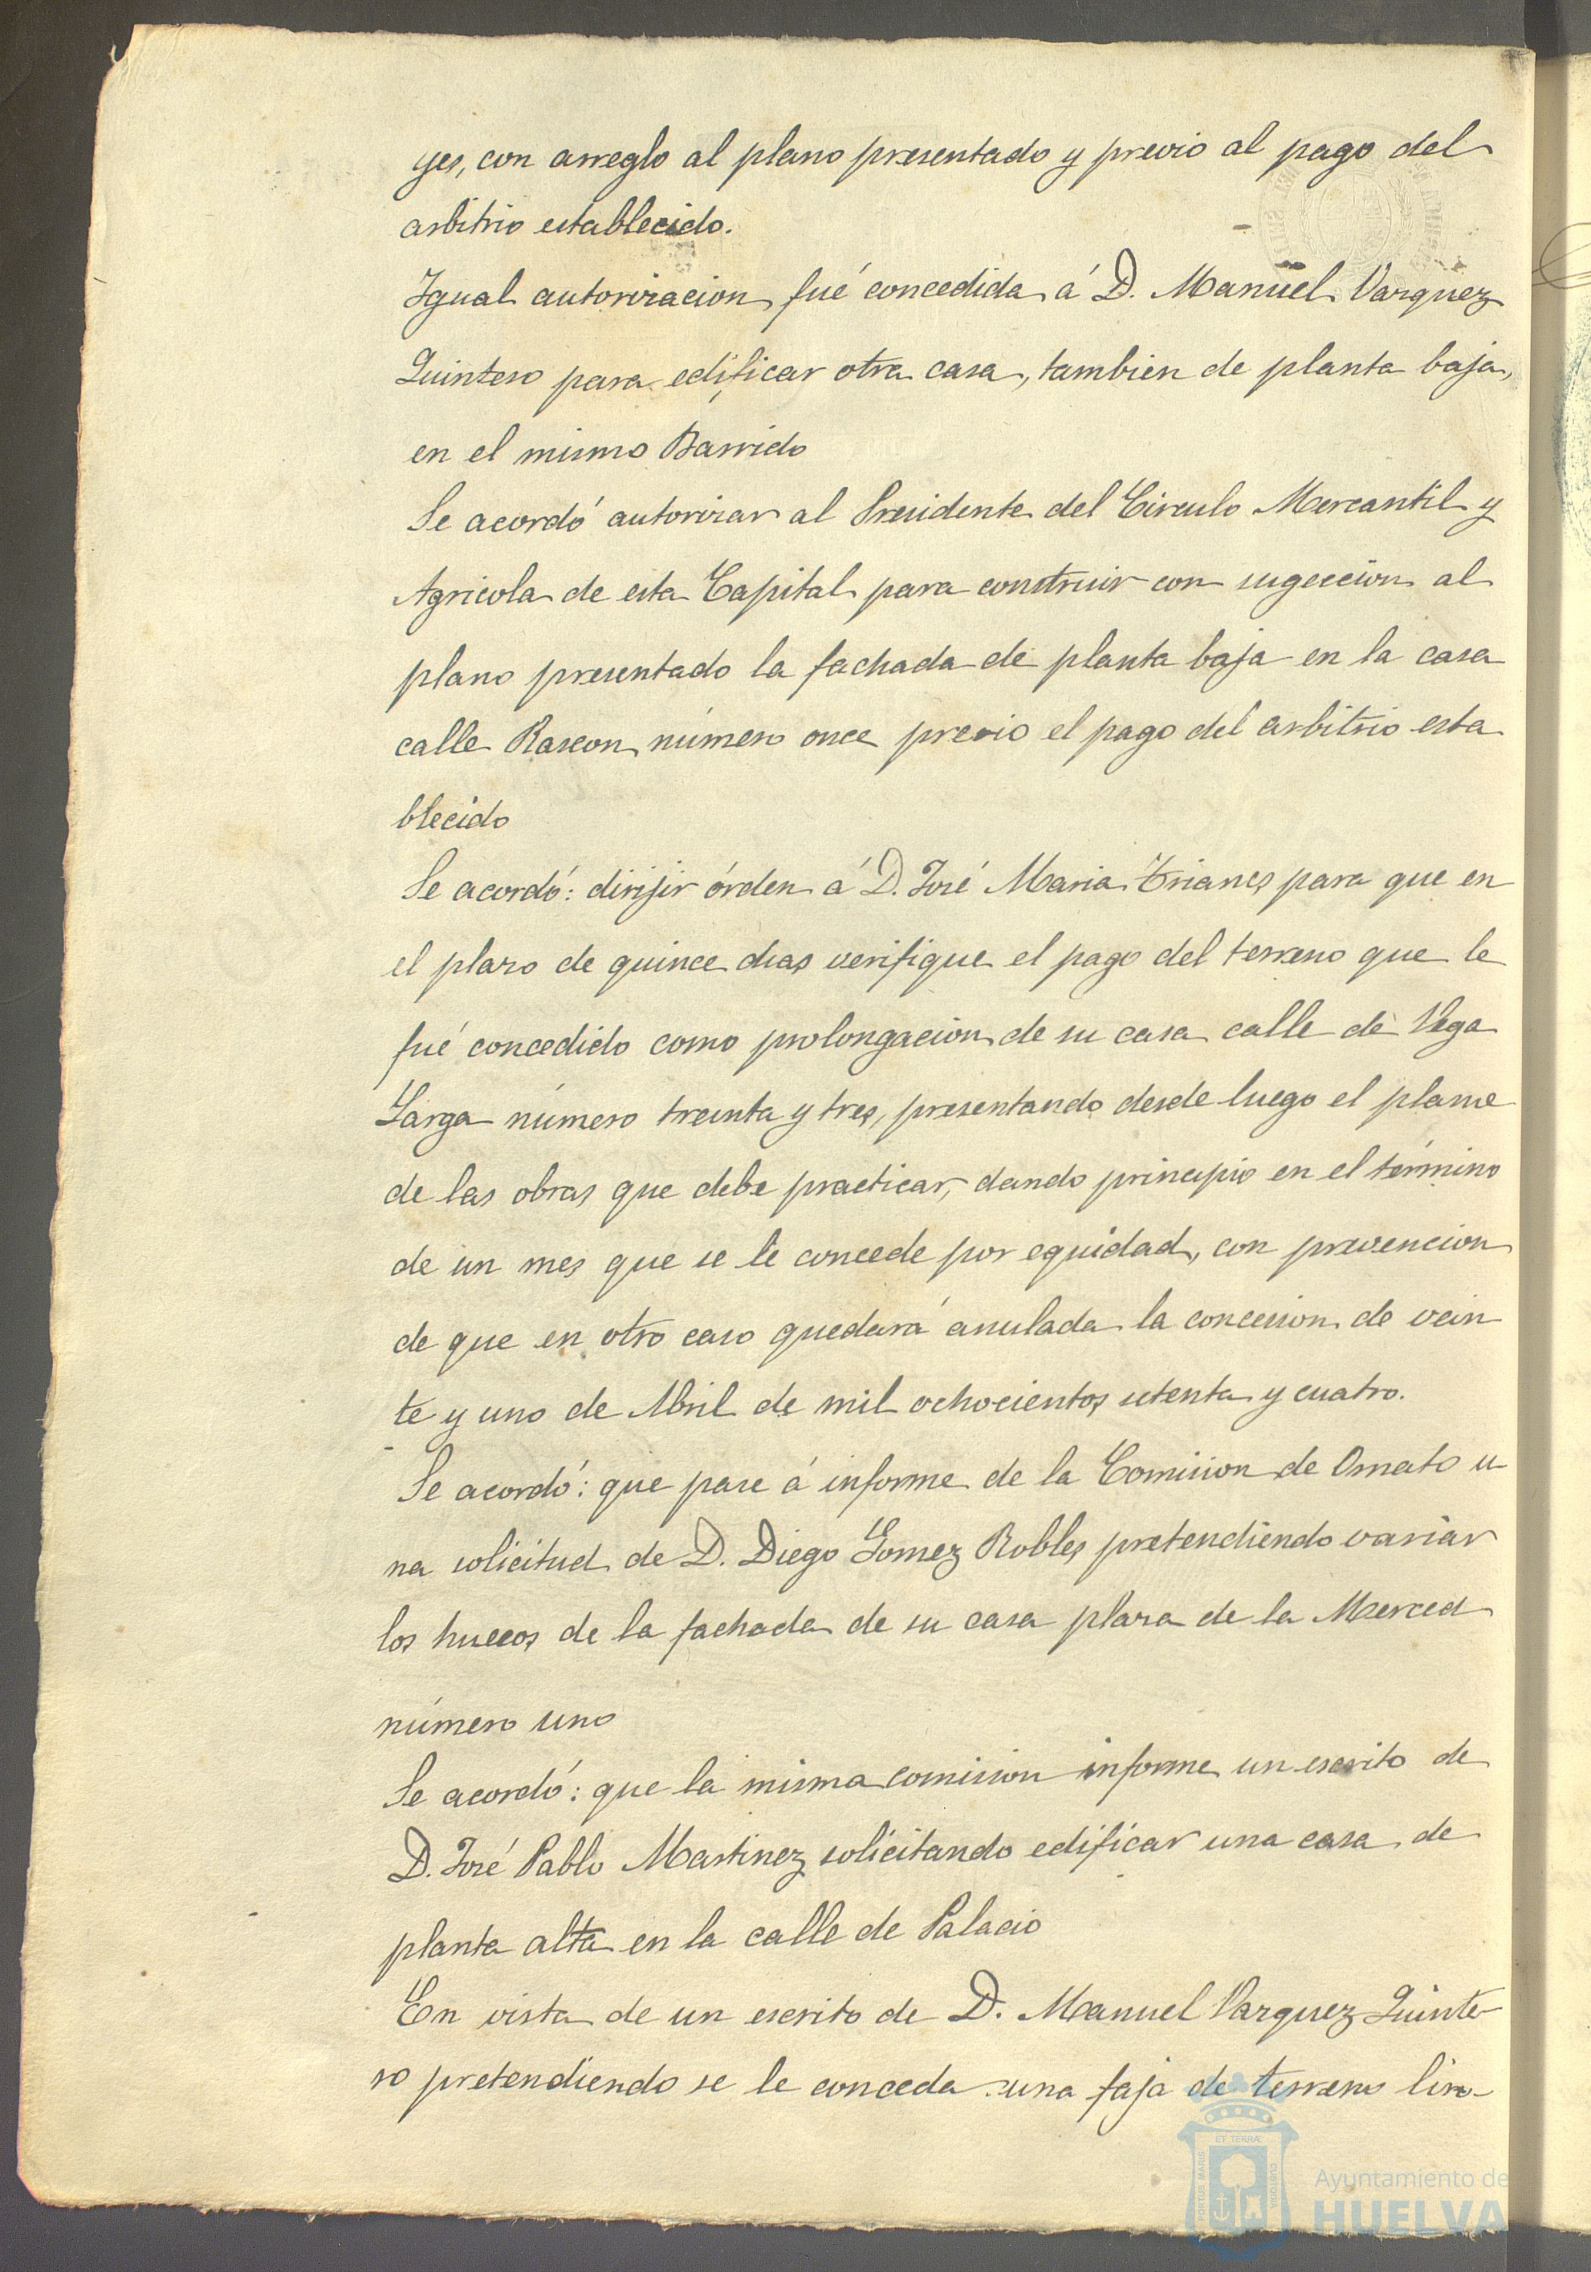 yes, con arreglo al plano presentado y previo al pago del
arbitrio establecido.
Igual autorizacion fué concedida á D. Manuel Vazquez
Quintero para edificar otra casa, tambien de planta baja,
en el mismo Barrido
Se acordó autorizar al Presidente del Circulo Mercantil y
Agricola de esta Capital para construir con sugeccion al
plano presentado la fachada de planta baja en la casa
calle Rascon número once previo el pago del arbitrio esta
blecido
Se acordó: dirijir órden á D. José Maria Trianes para que en
el plazo de quince dias verifique el pago del terreno que le
fué concedido como prolongacion de su casa calle de Vega
Larga número treinta y tres, presentando desde luego el plano
de las obras que debe practicar, dando principio en el término
de un mes que se le concede por equidad, con prevencion
de que en otro caso quedará anulada la concesion de vein
te y uno de Abril de mil ochocientos setenta y cuatro.
Se acordó: que pase á informe de la Comision de Ornato u
na solicitud de D. Diego Gomez Robles pretendiendo variar
los huecos de la fachada de su casa plaza de la Merced
número uno
Se acordó: que la misma comision informe un escrito de
D. José Pablo Martinez solicitando edificar una casa de
planta alta en la calle de Palacio
En vista de un escrito de D. Manuel Vazquez Quinte-
ro pretendiendo se le conceda una faja de terreno lin-
PORTUS MARIS ET TERRÆ CUSTODIA
Ayuntamiento de
HUELVA